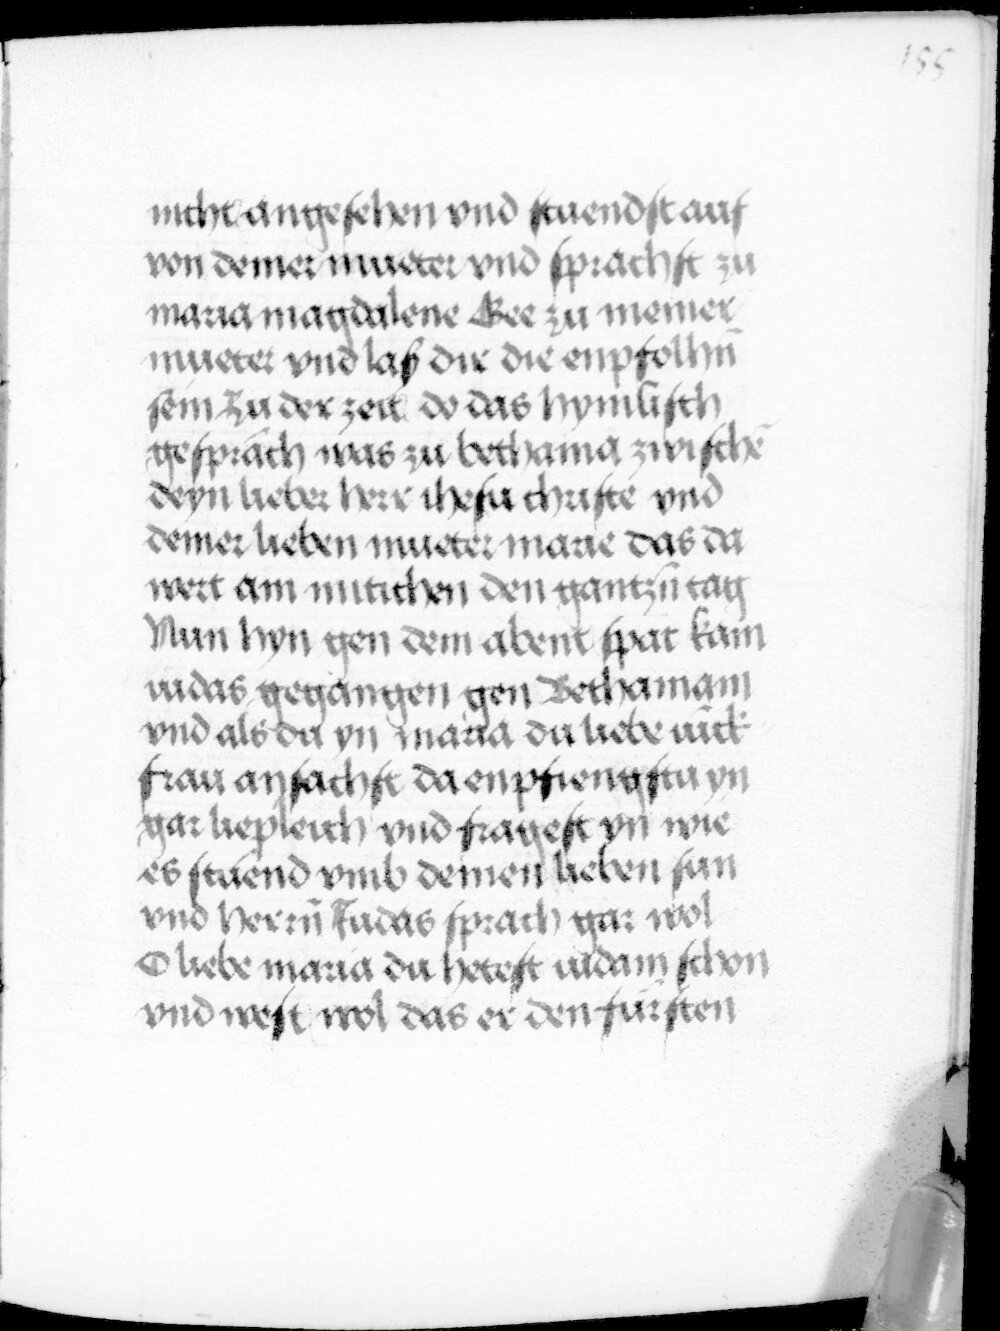 155
nicht angesehen vnd stuendst auf
von deiner mueter vnd sprachst zu
maria magdalene Gee zu meiner
mueter vnd las dir die enpfolhn̄
sein Zu der zeit do das hymlisch
gesprach was zu bethania zwischē
deyn lieber herr ihesu christe vnd
deiner lieben mueter marie das da
wert am mittichen den gantzn̄ tag
Nun hyn gen dem abent spat kam
iudas gegangen gen Bethaniam
vnd als du yn maria du liebe iūck
frau ansachst da enpfiengstu yn
gar liepleich vnd fragest yn wie
es stuend vmb deinen lieben sun
vnd herrn̄ Judas sprach gar wol
O liebe maria du hetest iudam schon
vnd west wol das er den fursten